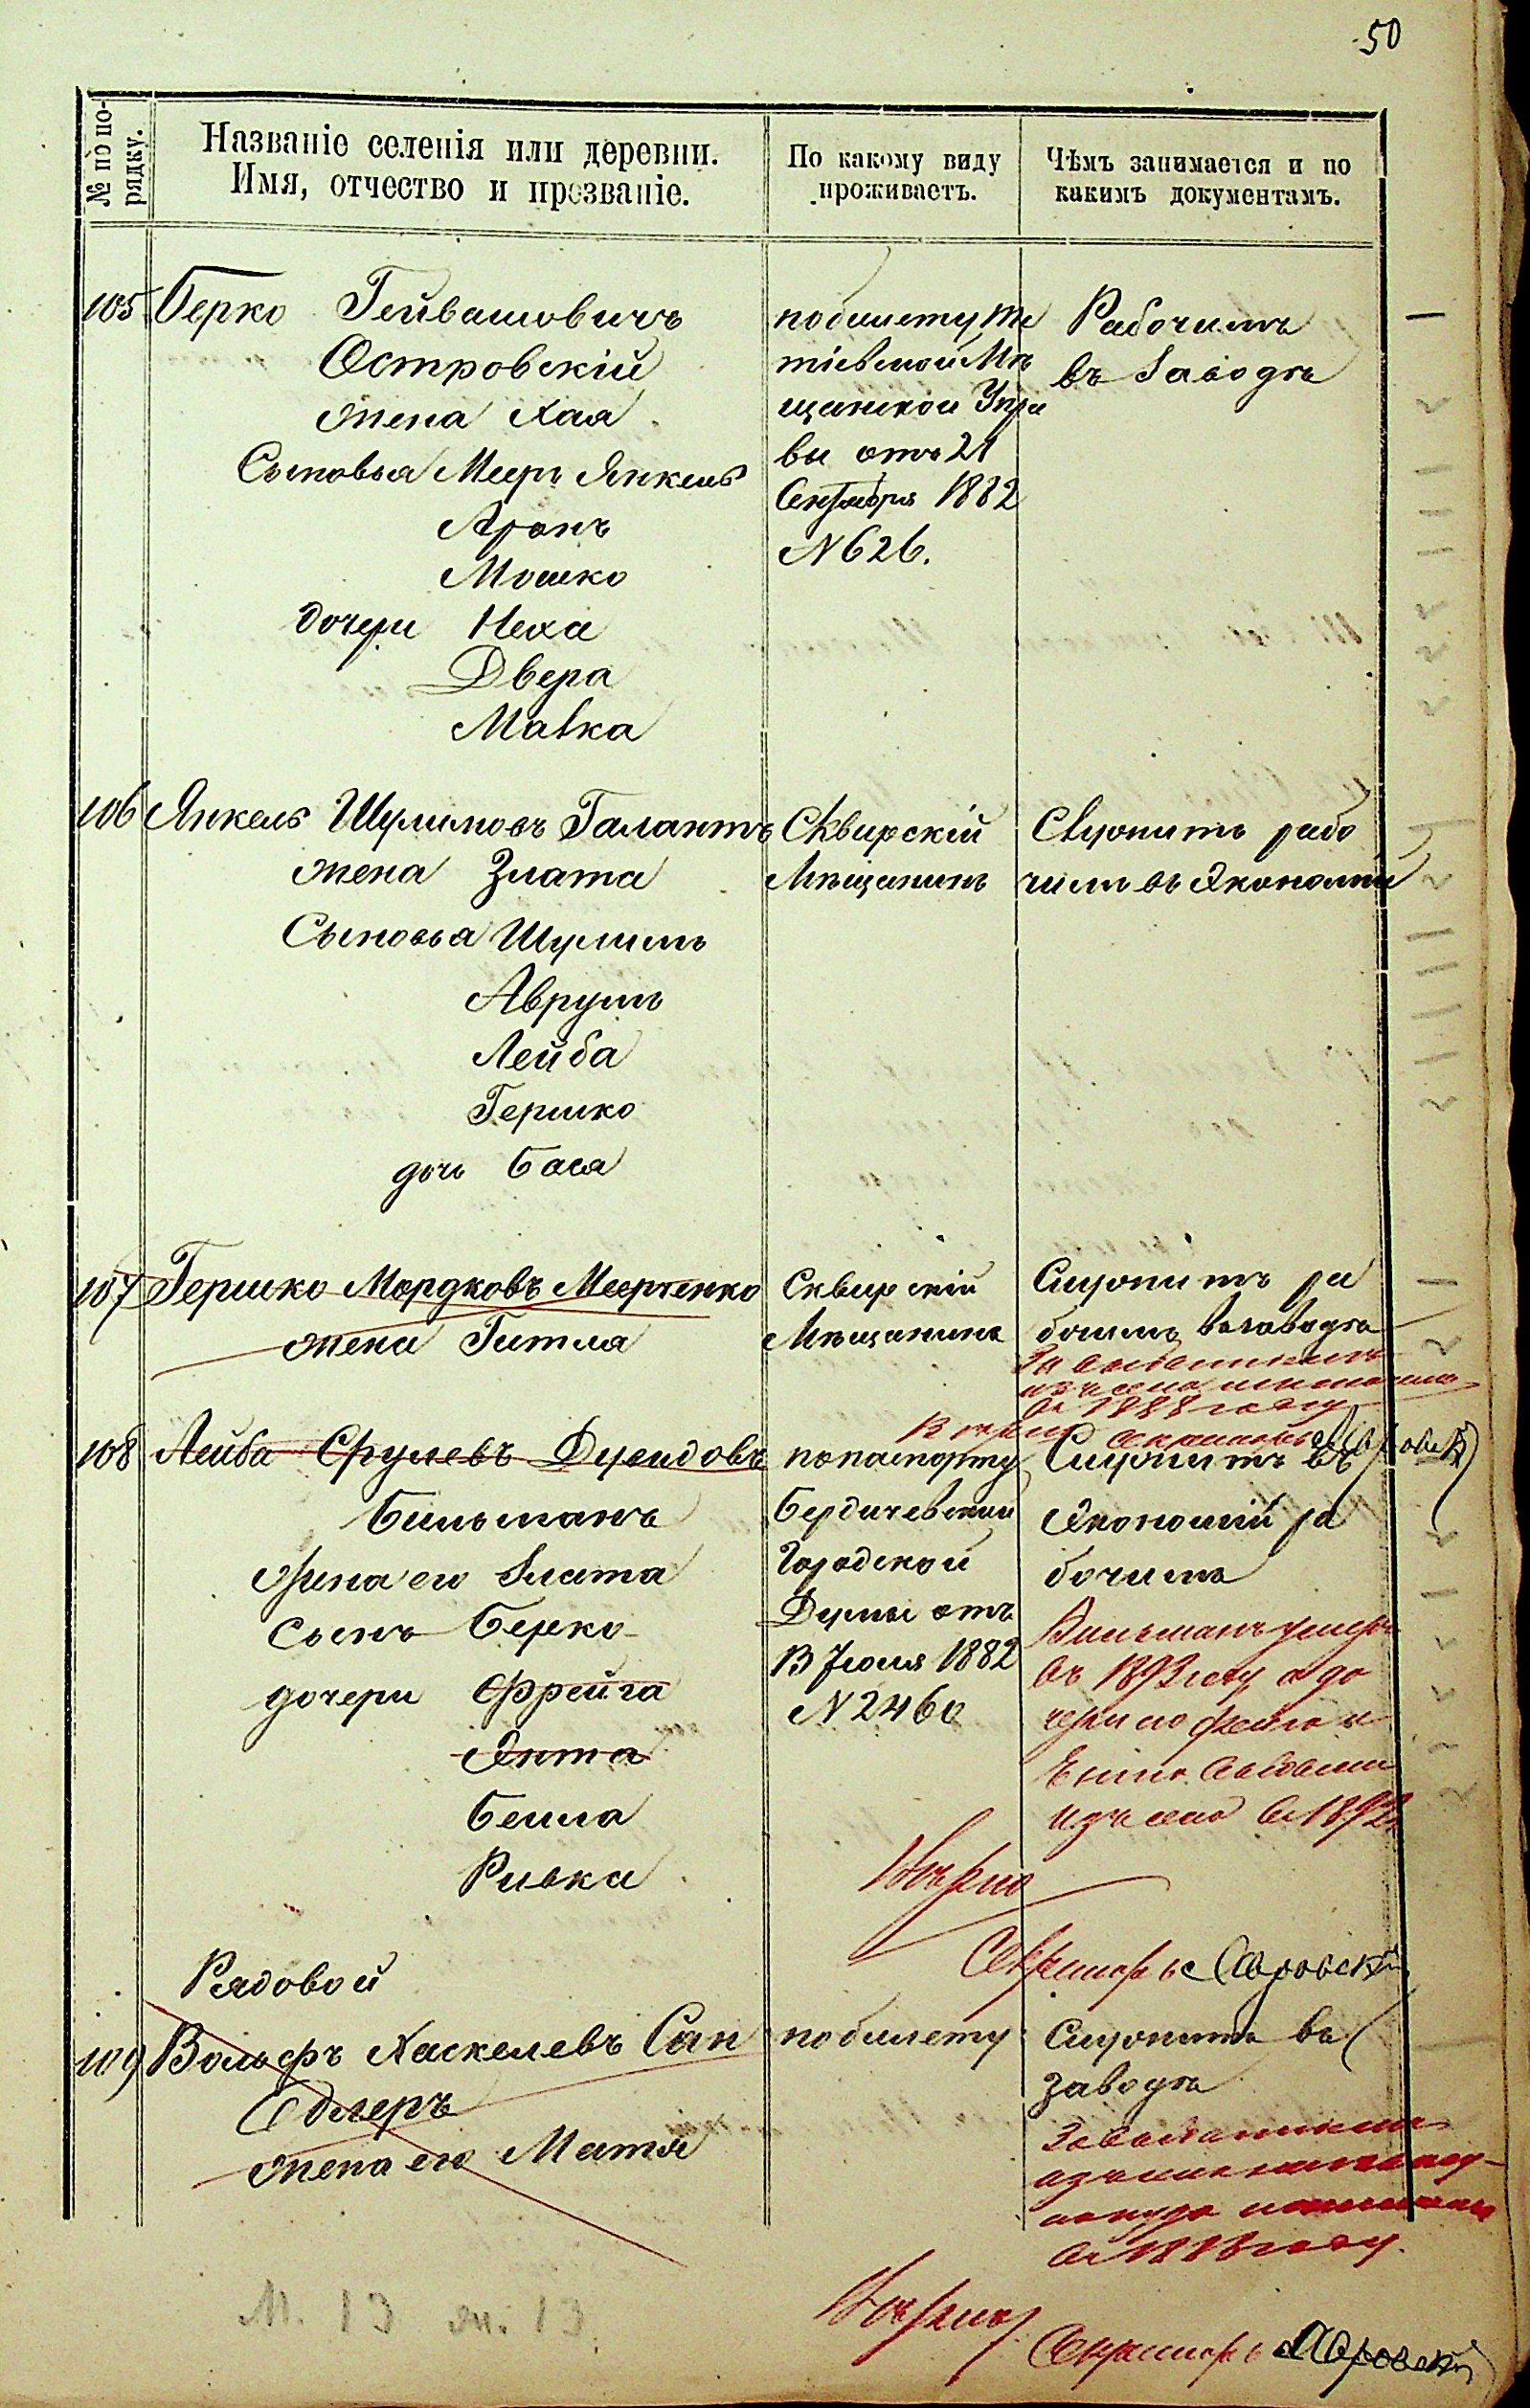 50
№ по по-
рядку.
Названіе селенія или деревни.
Имя, отчество и прозваніе.
По какому виду
проживаетъ.
Чѣмъ занимается и по
какимъ документамъ.
105 Берко Гейвашовичъ
Островскій
жена Хая
Сыновья Мееръ Янкель
Аронъ
Мошко
дочери Неха
Двера
Малка
по билету Те
тіевской Мѣ
щанской Упра
вы отъ 21
Сентября 1882
N 626.
Рабочимъ
въ Заводѣ
106 Янкель Шулимовъ Галантъ
жена Злата
Сыновья Шулимъ
Аврумъ
Лейба
Гершко
дочь Бася
Сквирскій
Мѣщанинъ
Служитъ рабо
чимъ въ Экономіи
107 Гершко Мордковъ Меерченко
жена Гитля
Сквирскій
Мѣщанинъ
Служитъ ра
бочимъ въ заводѣ
За выбытіемъ
изъ села
въ 1888 году
108 Лейба Срулевъ Дувидовъ
Бильманъ
Жена его Злата
Сынъ Берко
дочери Фрейга
Энта
Бейла
Ривка
по паспорту
Бердичевской
Городской
Думы отъ
13 Іюля 1882
N 2460
Служитъ въ
Экономіи ра
бочимъ
Бильманъ умеръ
въ 1893 году а до
чери его Фейга и
Ента выбыли
изъ села въ 1892
Вѣрно
Секретарь
Рядовой
109 Вольфъ Хаскелевъ Сан
Едлеръ
жена его Матя
по билету
Служитъ въ
заводѣ
За выбытіемъ
въ 1888 году.
Вѣрно
Секретарь